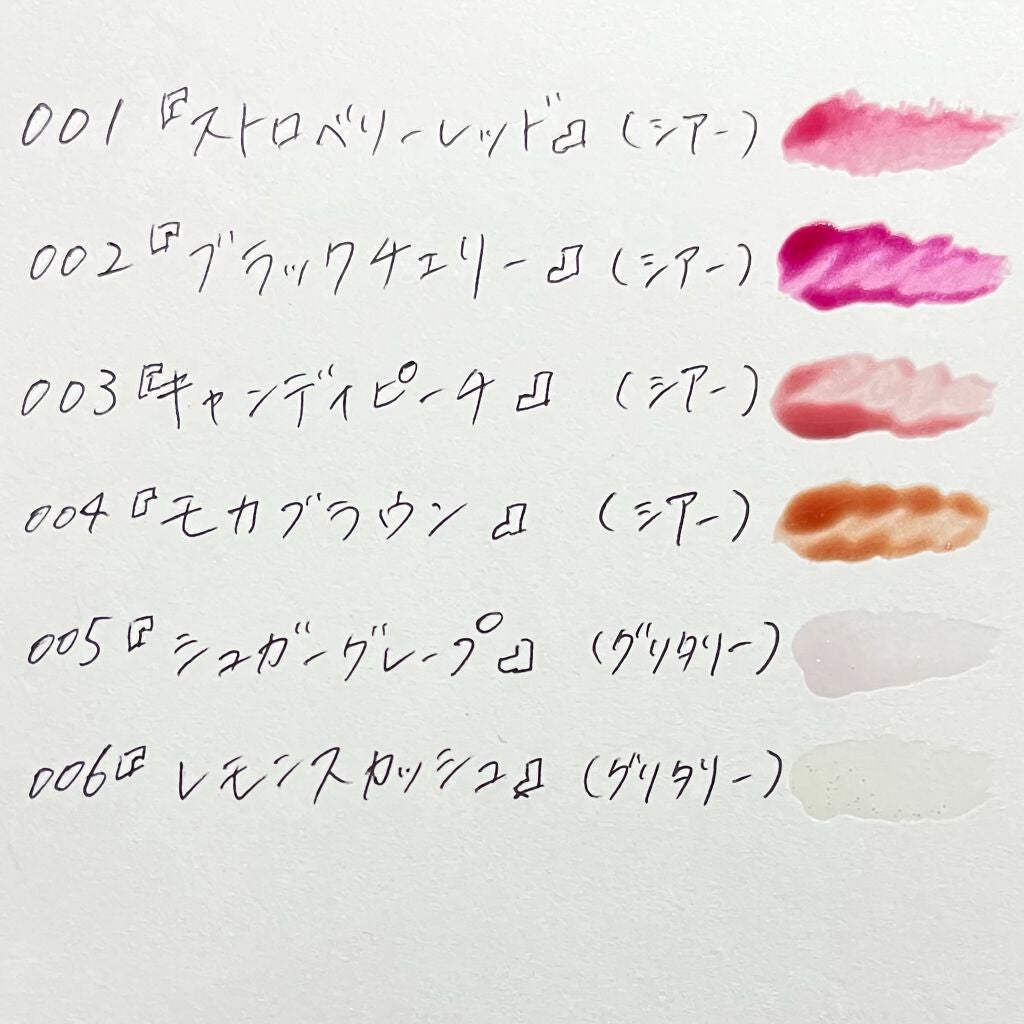 001『ストロベリーレッド』(シアー)
002『ブラックチェリー』(シアー)
003『キャンディピーチ』(シアー)
004『モカブラウン』(シアー)
005『シュガーグレープ』(グリタリー)
006『レモンスカッシュ』(グリタリー)